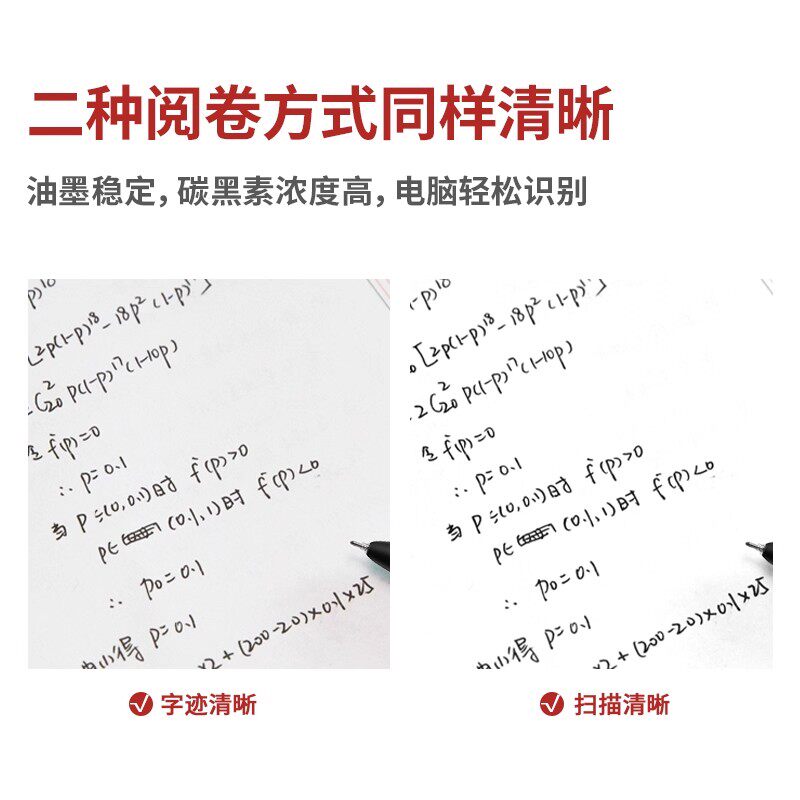 二种阅卷方式同样清晰
油墨稳定，碳黑素浓度高，电脑轻松识别
-p)¹⁰
[2p(1-p)¹⁸-18p²(1-p)¹⁷]
2C²₂₀p(1-p)¹⁷(1-10p)
f'(p)=0
∴ p=0.1
当 p=(0,0.1)时 f'(p)>0
p∈ (0.1,1)时 f'(p)<0
∴ p₀=0.1
得 p=0.1
×2+(200-20)×0.1×25
-p)¹⁰
[2p(1-p)¹⁸-18p²(1-p)¹⁷]
2C²₂₀p(1-p)¹⁷(1-10p)
令f'(p)=0
∴ p=0.1
当 p=(0,0.1)时 f'(p)>0
p∈ (0.1,1)时 f'(p)<0
∴ p₀=0.1
得 p=0.1
×2+(200-20)×0.1×25
字迹清晰
扫描清晰